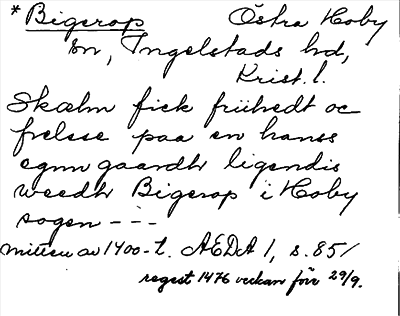 * Bigerop Östra Hoby
sn, Ingelstads hd,
Krist. l.
Skælm fick friihedt oc
frelsse paa en hanss
egnn gaardh ligendis
weedh Bigerop i Hoby
sogen - - -
mitten av 1400-t. ÆDA 1, s. 85/
regest 1476 verkan före 29/9.